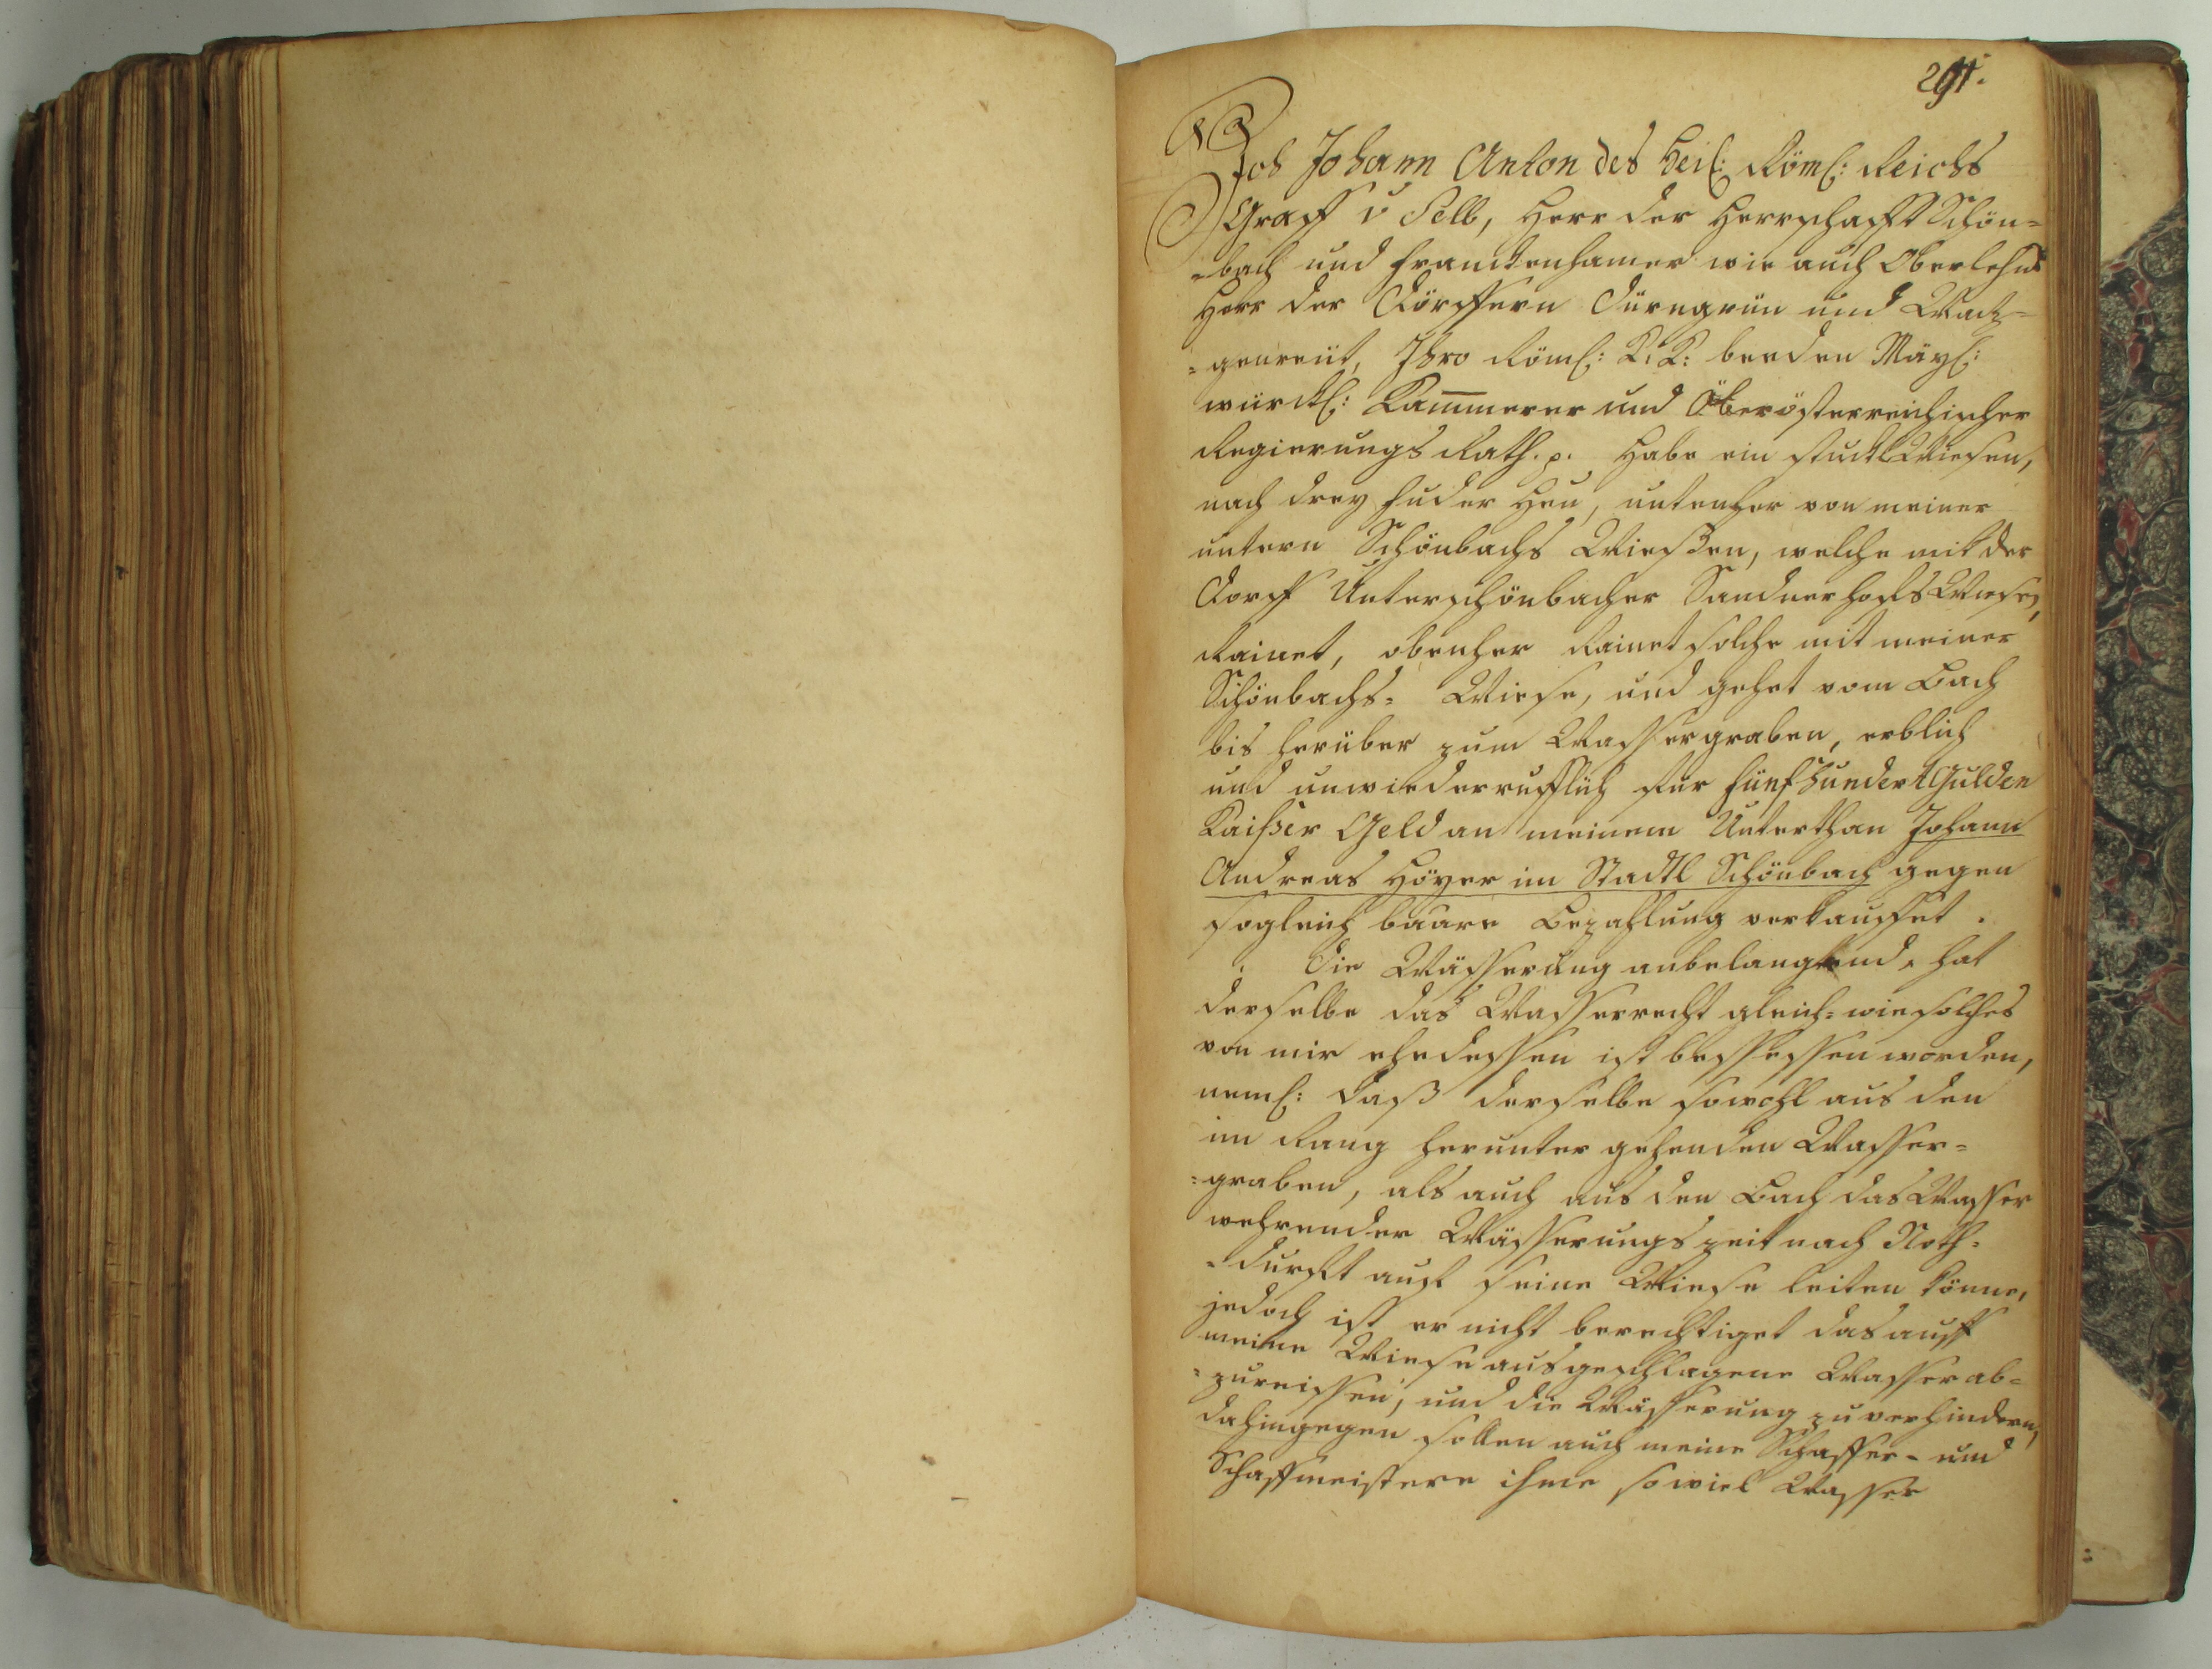 291.
Ich Johann Anton des Heil: Röml: Reichs
Graff v Selb, Herr der Herrschafft Schön=
=bach und Franckenhamer wie auch Oberlehns
Herr der Dörffern Dürngrün und Watz=
=genreüt, Ihro Röml: K: K: beeden Mäyl:
würckl: Kammerer und Öberösterreichischer
Regierungs Rath. p. Habe ein stuckl Wiesen,
nach drey Fuder Heu, untenher von meiner
untern Schönbachs Wießen, welche mit der
Dorff Unterschönbacher Sandnerhofs Wiesen,
Rainet, obenher Rainet solche mit meiner
Schönbachs= Wiese, und gehet vom Bach
bis herüber zum Wassergraben, erblich
und unwiederrufflich fur fünfhundert Gulden
Kaißer Geld an meinem Unterthan Johann
Andreas Höyer im Stadtl Schönbach gegen
sogleich baare Bezahlung verkauffet.
Die Wässerung anbelangend, hat
derselbe das Wasserrecht gleich=wie solches
von mir ehedessen ist bessessen worden,
neml: daß derselbe sowohl aus den
im Rang herunter gehenden Wasser=
=graben, als auch aus den Bach das Wasser
wehrender Wässerungszeit nach Noth=
=durfft auf seine Wiese leiten könne,
jedoch ist er nicht berechtiget das auff
meine Wiese ausgeschlagene Wasser ab=
=zureissen, und die Wässerung zu verhindern,
dahingegen sollen auch meine Schaffer= und
Schaffmeistere ihme so viel Wasser